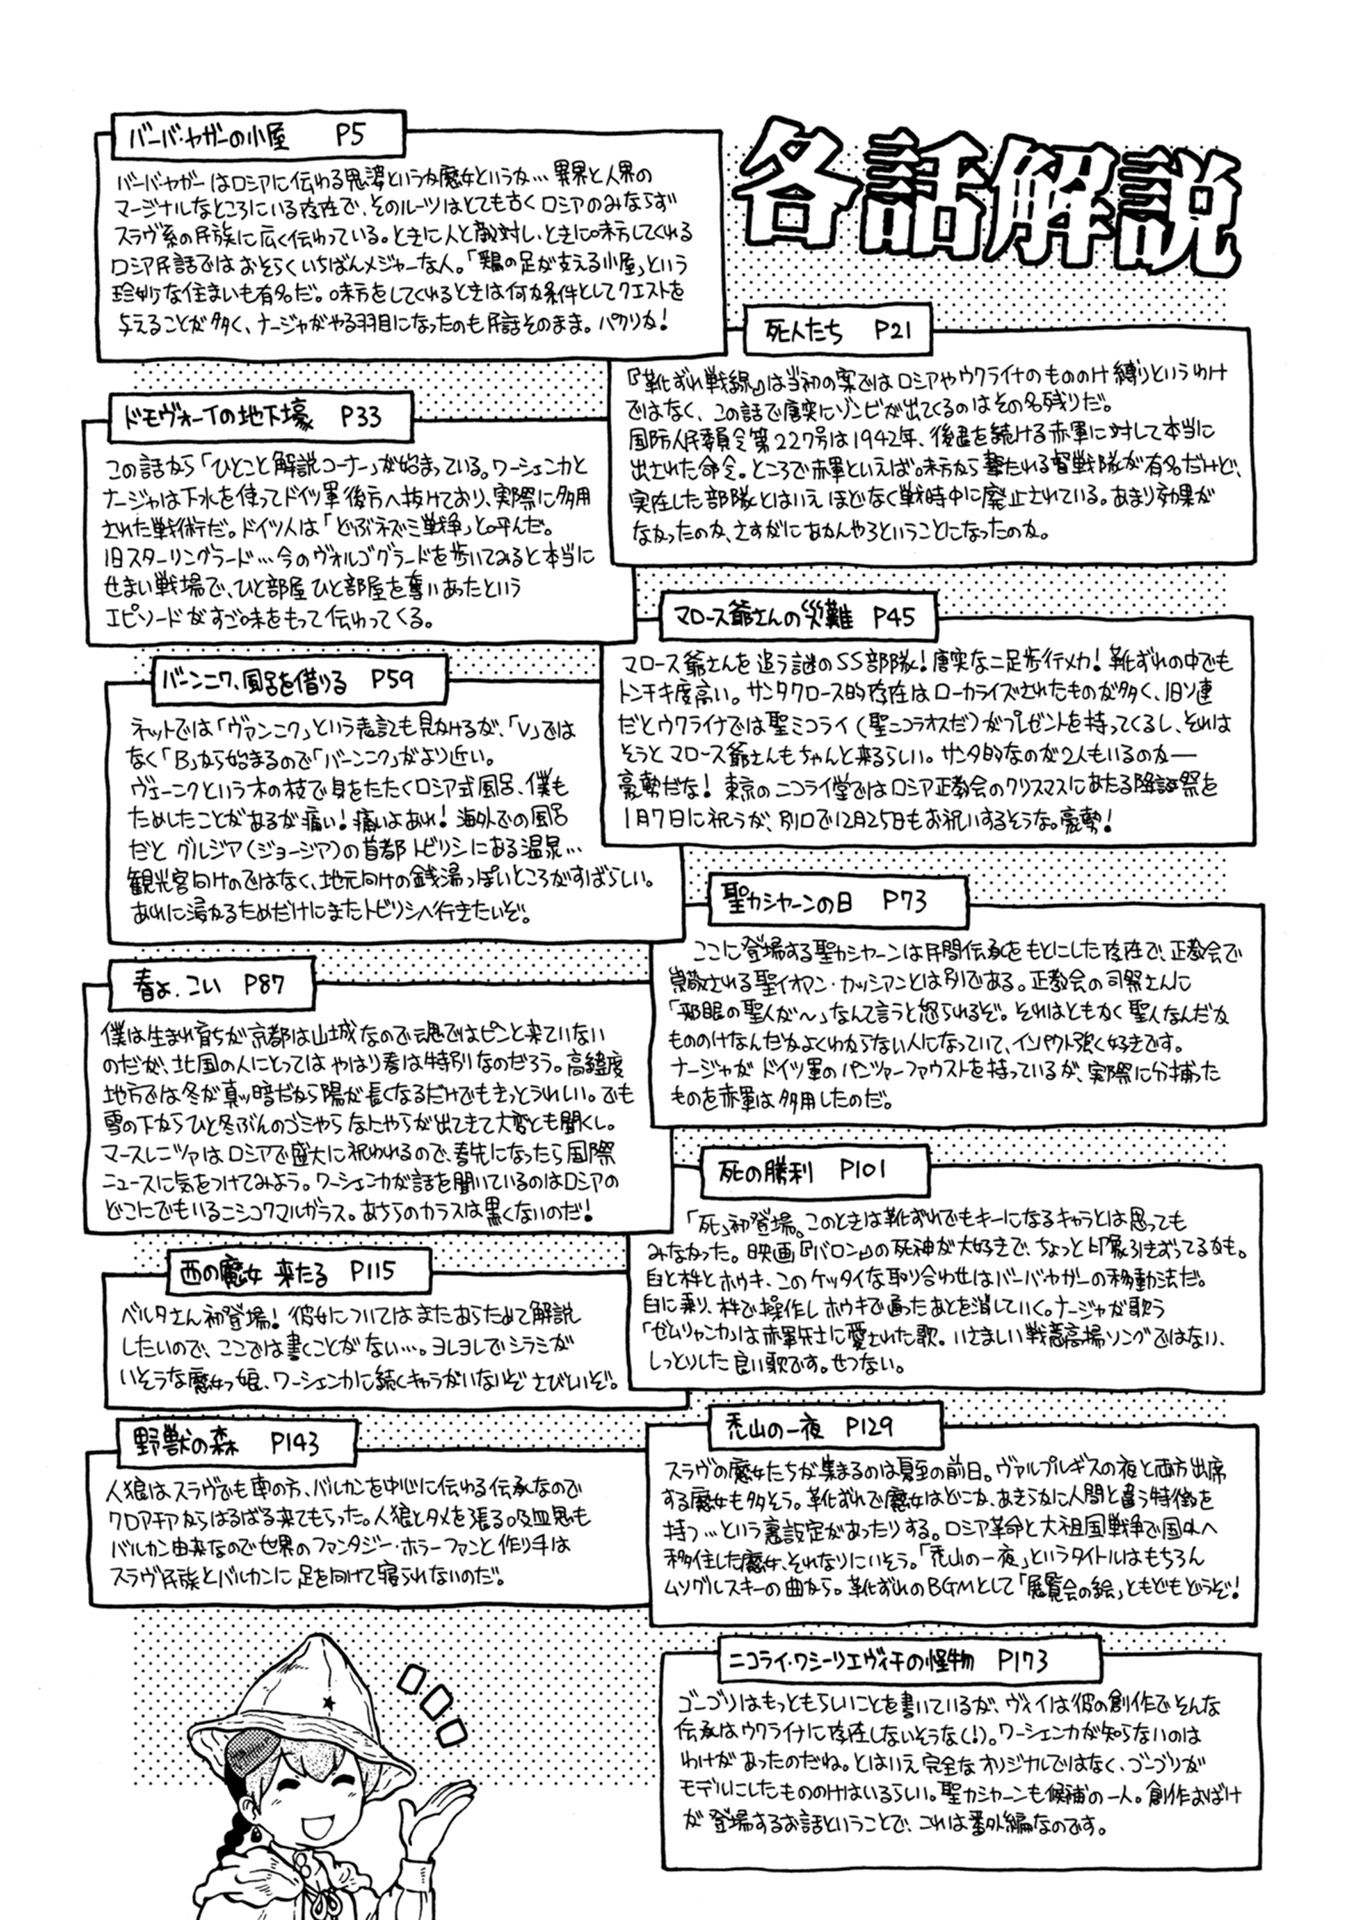 各話解説
バーバ・ヤガーの小屋 P5
バーバ・ヤガーはロシアに伝わる鬼婆というか魔女というか…異界と人界の
マージナルなところにいる存在で、そのルーツはとても古くロシアのみならず
スラヴ系の民族に広く伝わっている。ときに人と敵対し、ときに味方してくれる
ロシア民話ではおそらくいちばんメジャーな人。「鶏の足が支える小屋」という
珍妙な住まいも有名だ。味方をしてくれるときは何か条件としてクエストを
与えることが多く、ナージャがやる羽目になったのも民話そのまま。パクリか!
死人たち P21
『靴ずれ戦線』は当初の案ではロシアやウクライナのもののけ縛りというわけ
ではなく、この話で唐突にゾンビが出てくるのはその名残りだ。
国防人民委員令第227号は1942年、後退を続ける赤軍に対して本当に
出された命令。ところで赤軍といえば味方から撃たれる督戦隊が有名だけど、
実在した部隊とはいえほどなく戦時中に廃止されている。あまり効果が
なかったのか、さすがにあかんやろということになったのか。
ドモヴォーイの地下壕 P33
この話から「ひとこと解説コーナー」が始まっている。ワーシェンカと
ナージャは下水を使ってドイツ軍後方へ抜けており、実際に多用
された戦術だ。ドイツ人は「どぶネズミ戦争」と呼んだ。
旧スターリングラード…今のヴォルゴグラードを歩いてみると本当に
せまい戦場で、ひと部屋ひと部屋を奪いあったという
エピソードがすご味をもって伝わってくる。
マロース爺さんの災難 P45
マロース爺さんを追う謎のSS部隊!唐突な二足歩行メカ!靴ずれの中でも
トンチキ度高い。サンタクロース的存在はローカライズされたものが多く、旧ソ連
だとウクライナでは聖ミコライ(聖ニコラオスだ)がプレゼントを持ってくるし、それは
そうとマロース爺さんもちゃんと来るらしい。サンタ的なのが2人もいるのか―
豪勢だな!東京のニコライ堂ではロシア正教会のクリスマスにあたる降誕祭を
1月7日に祝うが、別口で12月25日もお祝いするそうな。豪勢!
バーンニク、風呂を借りる P59
ネットでは「ヴァンニク」という表記も見かけるが、「V」では
なく「B」から始まるので「バーンニク」がより近い。
ヴェーニクという木の枝で身をたたくロシア式風呂、僕も
ためしたことがあるが痛い!痛いよあれ!海外での風呂
だとグルジア(ジョージア)の首都トビリシにある温泉…
観光客向けのではなく、地元向けの銭湯っぽいところがすばらしい。
あれに浸かるためだけにまたトビリシへ行きたいぞ。
聖カシヤーンの日 P73
ここに登場する聖カシヤーンは民間伝承をもとにした存在で、正教会で
崇敬される聖イオアン・カッシアンとは別である。正教会の司祭さんに
「邪眼の聖人が〜」なんて言うと怒られるぞ。それはともかく聖人なんだか
もののけなんだかよくわからない人になっていて、インパクト強く好きです。
ナージャがドイツ軍のパンツァーファウストを持っているが、実際に分捕った
ものを赤軍は多用したのだ。
春よ、こい P87
僕は生まれ育ちが京都は山城なので魂ではピンと来ていない
のだが、北国の人にとってはやはり春は特別なのだろう。高緯度
地方では冬が真ッ暗だから陽が長くなるだけでもきっとうれしい。でも
雪の下からひと冬ぶんのゴミやらなにやらが出てきて大変とも聞くし。
マースレニツァはロシアで盛大に祝われるので、春先になったら国際
ニュースに気をつけてみよう。ワーシェンカが話を聞いているのはロシアの
どこにでもいるニシコクマルガラス。あちらのカラスは黒くないのだ!
死の勝利 P101
「死」初登場。このときは靴ずれでもキーになるキャラとは思っても
みなかった。映画『バロン』の死神が大好きで、ちょっと印象引きずってるかも。
臼と杵とホウキ、このケッタイな取り合わせはバーバ・ヤガーの移動法だ。
臼に乗り、杵で操作しホウキで通ったあとを消していく。ナージャが歌う
「ゼムリャンカ」は赤軍兵士に愛された歌。いさましい戦意高揚ソングではない、
しっとりした良い歌です。せつない。
西の魔女 来たる P115
ベルタさん初登場!彼女についてはまたあらためて解説
したいので、ここでは書くことがない…。ヨレヨレでシラミが
いそうな魔女っ娘、ワーシェンカに続くキャラがいないぞさびしいぞ。
禿山の一夜 P129
スラヴの魔女たちが集まるのは夏至の前日。ヴァルプルギスの夜と両方出席
する魔女も多そう。靴ずれで魔女はどこか、あきらかに人間と違う特徴を
持つ…という裏設定があったりする。ロシア革命と大祖国戦争で国外へ
移住した魔女、それなりにいそう。「禿山の一夜」というタイトルはもちろん
ムソルグスキーの曲から。靴ずれのBGMとして「展覧会の絵」ともどもどうぞ!
野獣の森 P143
人狼はスラヴでも南の方、バルカンを中心に伝わる伝承なので
クロアチアからはるばる来てもらった。人狼とタメを張る吸血鬼も
バルカン由来なので世界のファンタジー・ホラーファンと作り手は
スラヴ民族とバルカンに足を向けて寝られないのだ。
ニコライ・ワシーリエヴィチの怪物 P173
ゴーゴリはもっともらしいことを書いているが、ヴィイは彼の創作でそんな
伝承はウクライナに存在しないそうな(!)。ワーシェンカが知らないのは
わけがあったのだね。とはいえ完全なオリジナルではなく、ゴーゴリが
モデルにしたもののけはいるらしい。聖カシヤーンも候補の一人。創作おばけ
が登場するお話ということで、これは番外編なのです。